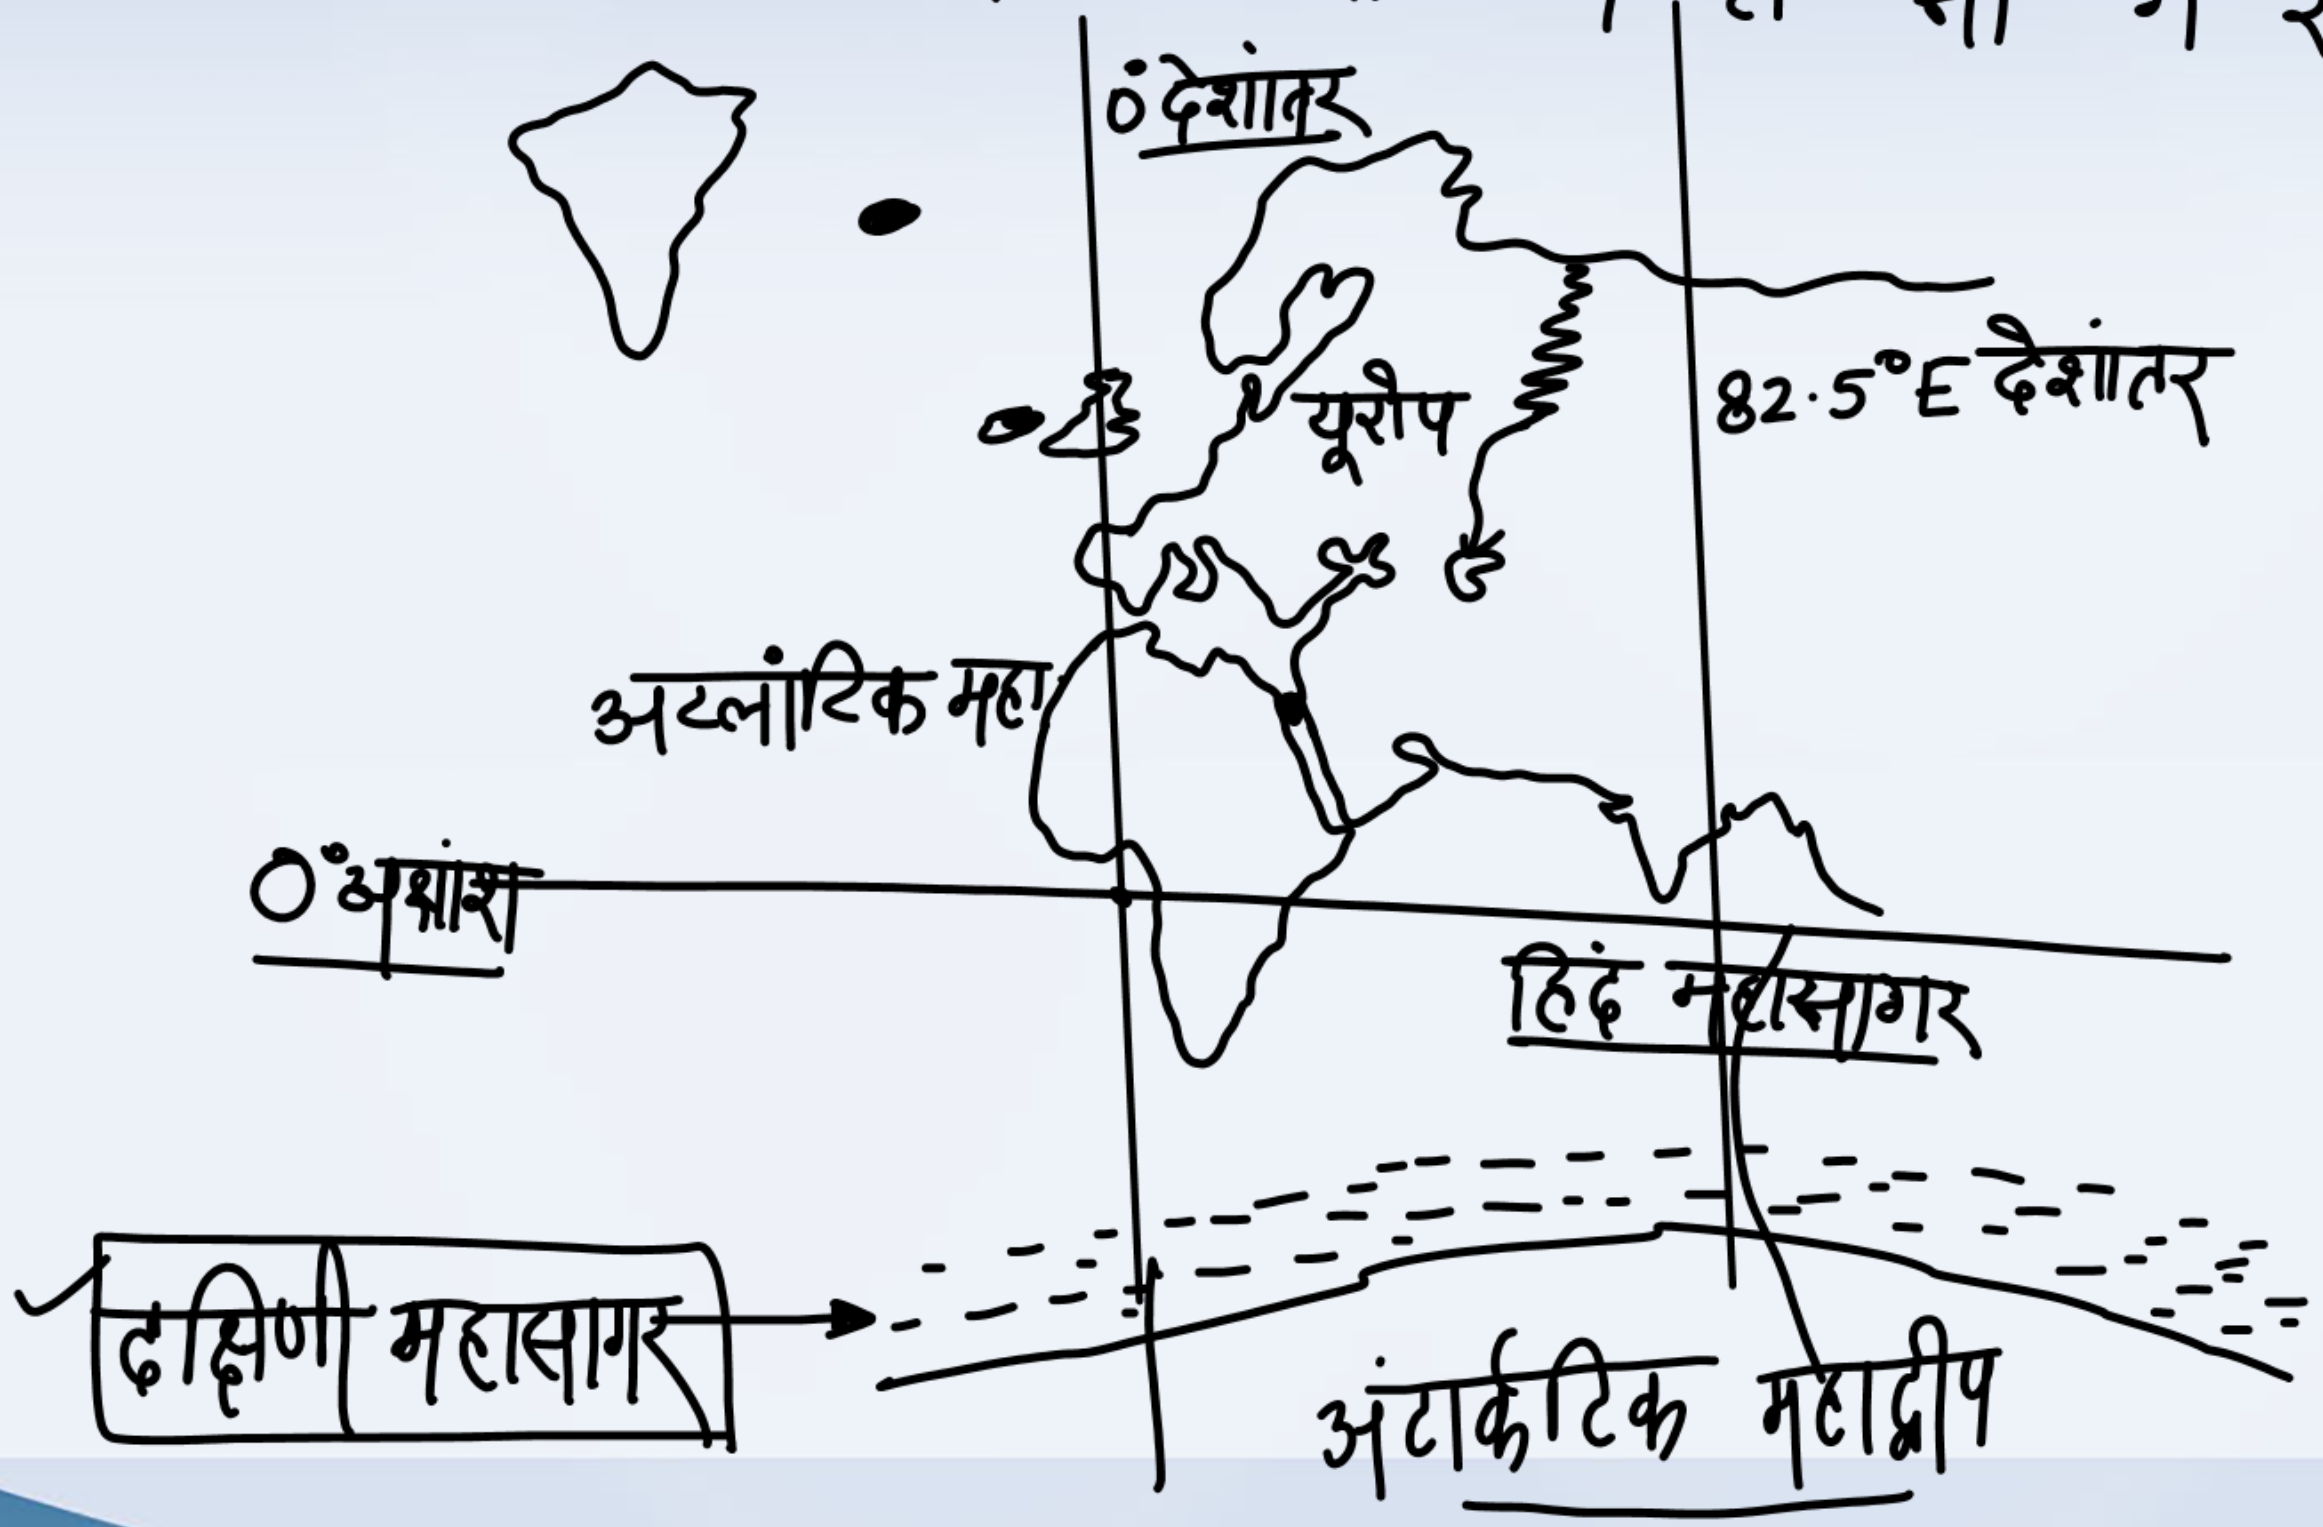 0° देशांतर
82.5°E देशांतर
यूरोप
अटलांटिक महा
0° अक्षांश
हिंद महासागर
दक्षिण महासागर
अंटार्कटिक महाद्वीप